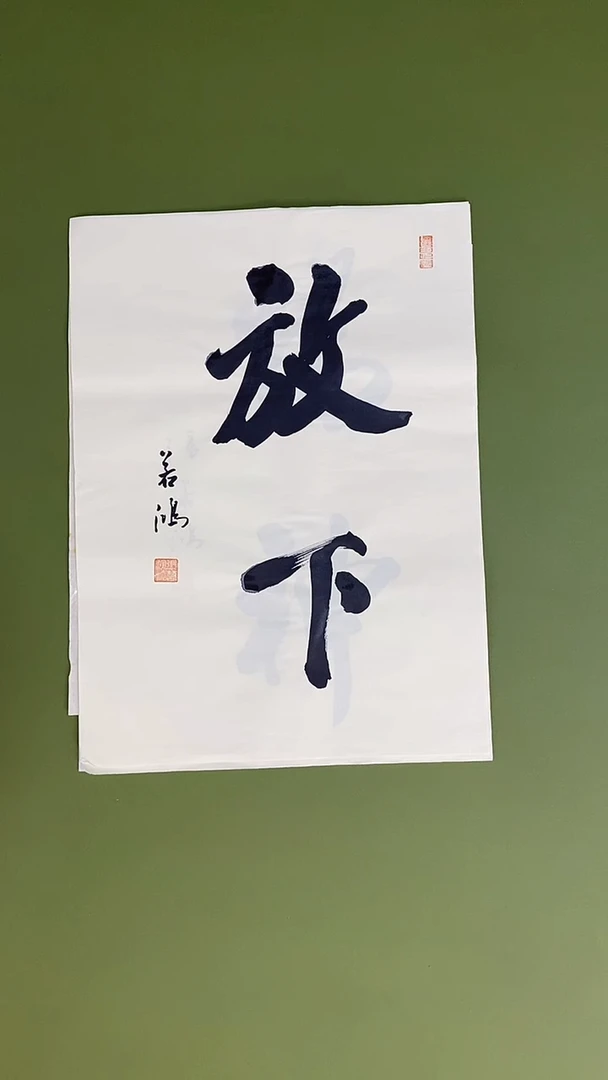 放下
若鴻